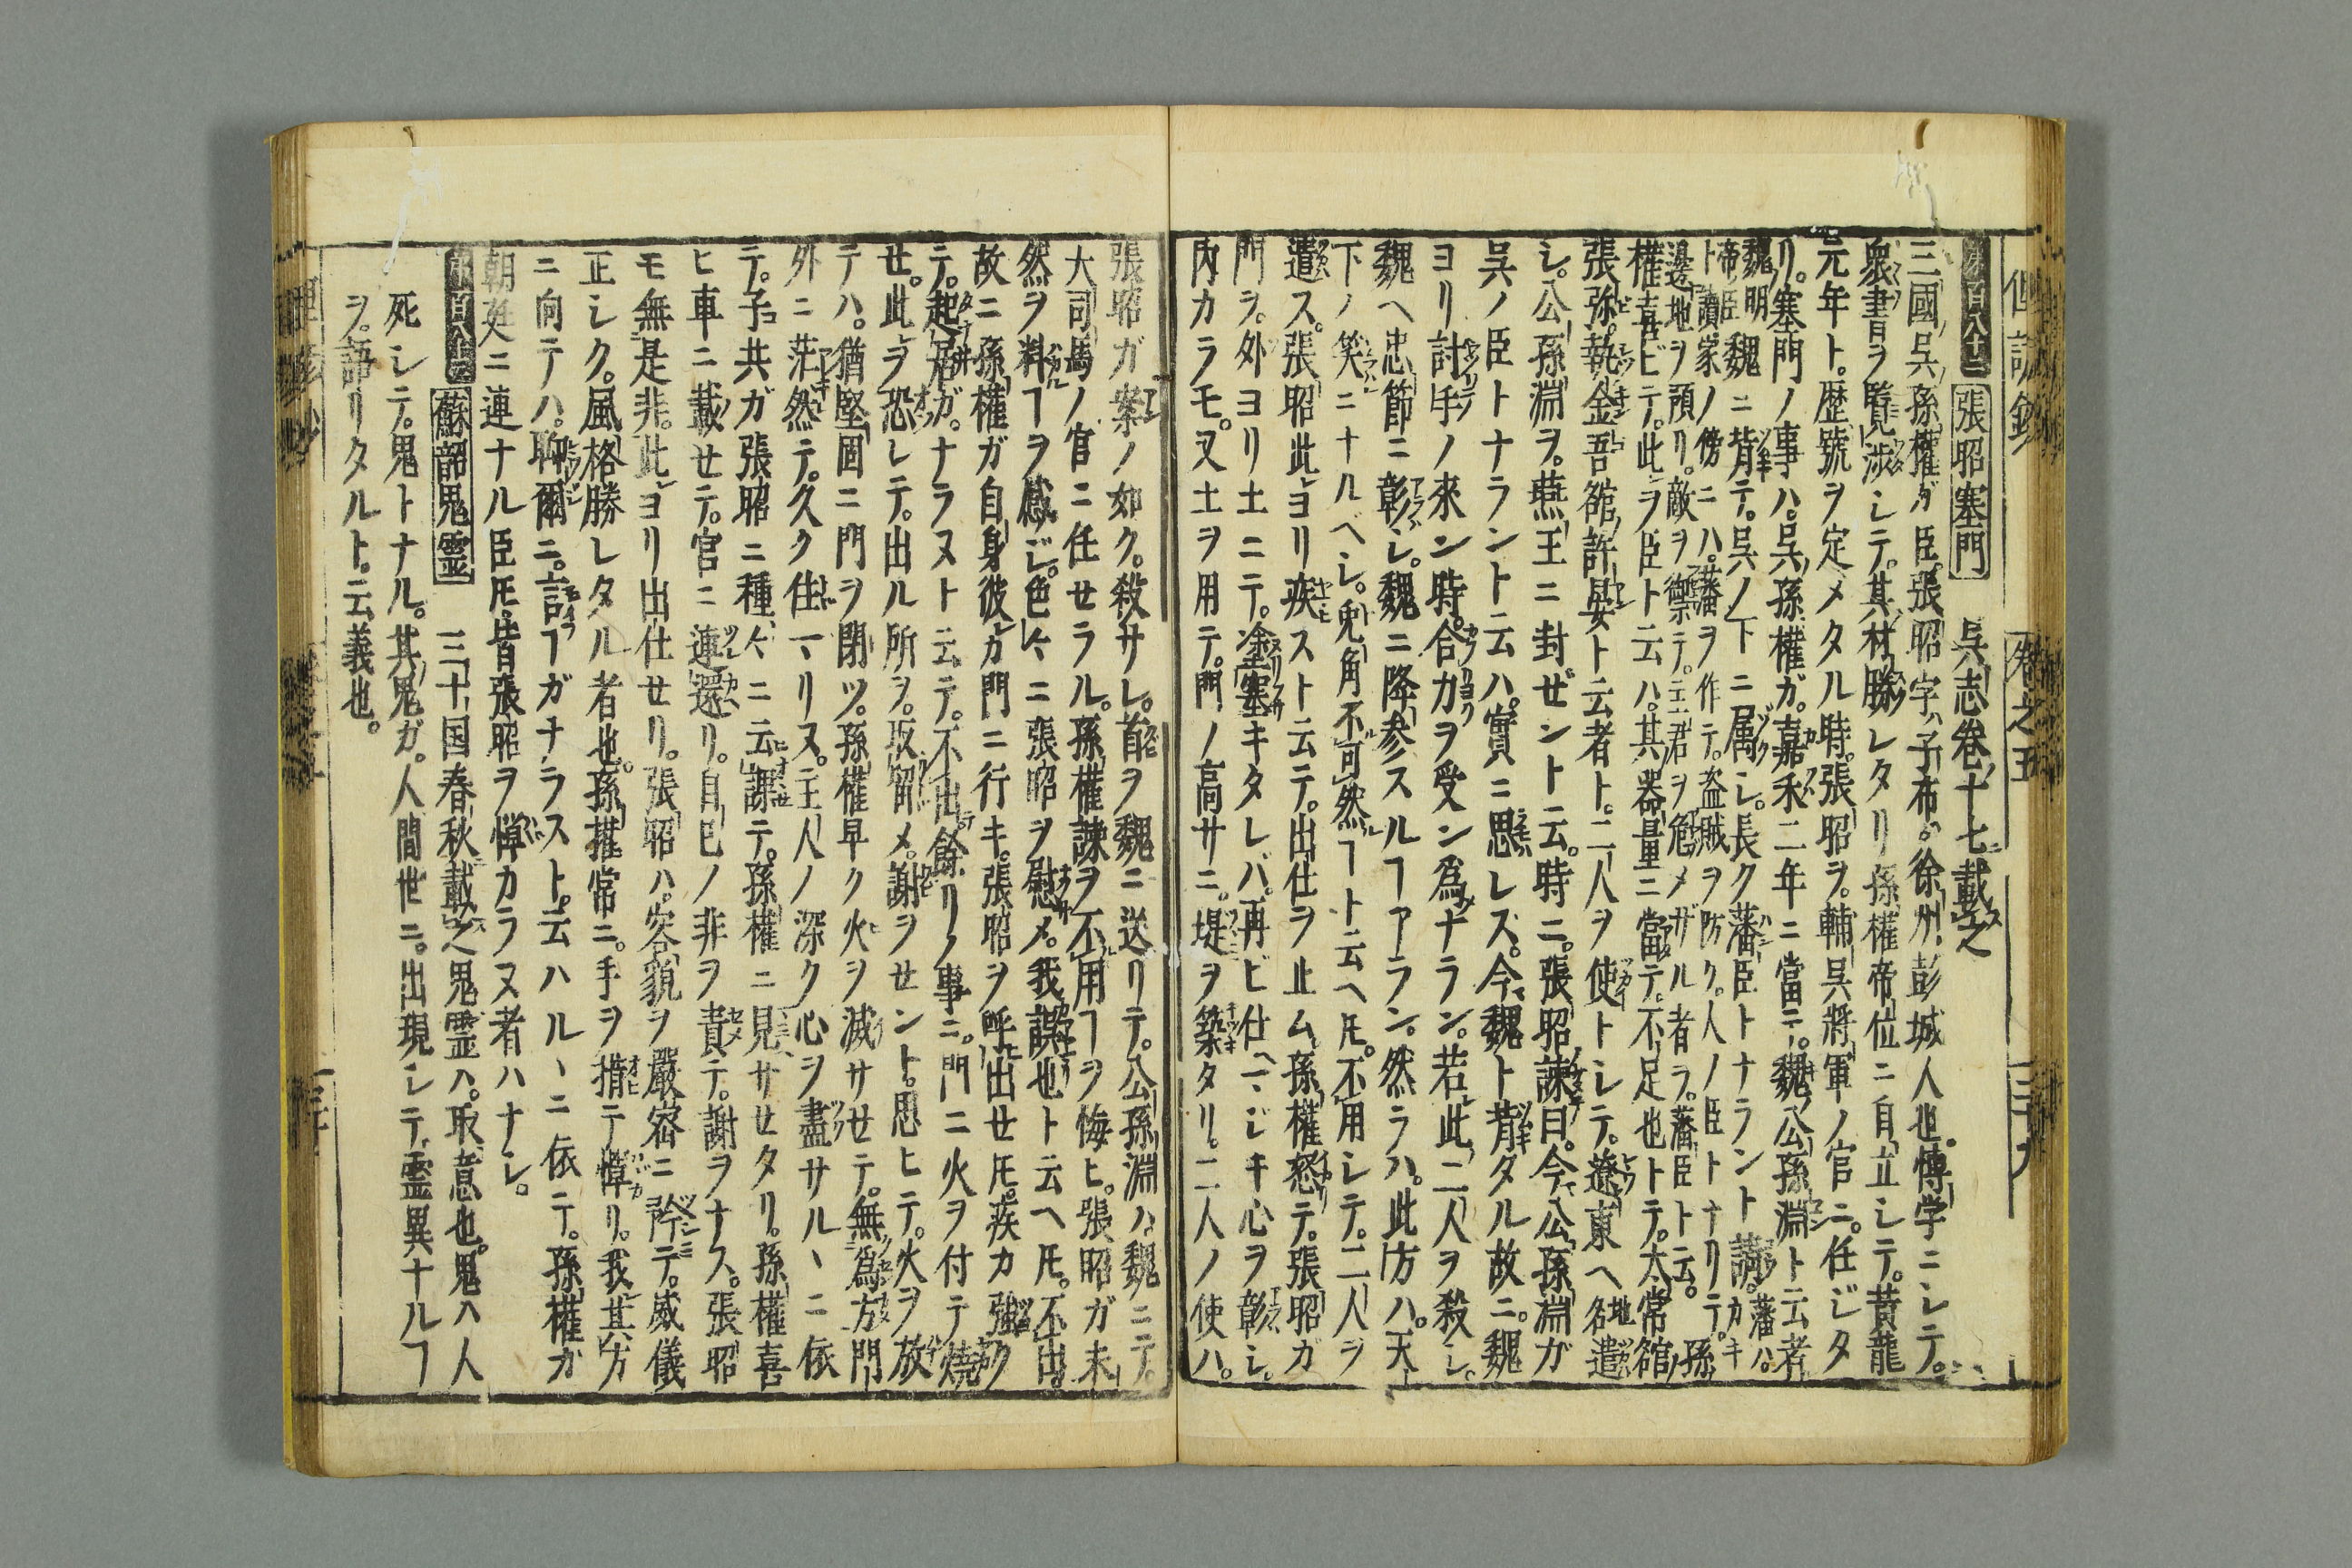 張昭塞門 呉志巻十七載之
三國呉孫權ガ臣。張昭字ハ子布。徐州彭城人也。博学ニシテ。
衆書ヲ覽渉シテ。其材勝レタリ孫權帝位ニ自立シテ。黄龍
元年ト。歴號ヲ定メタル時。張昭ヲ。輔呉將軍ノ官ニ。任ジタ
リ。塞門ノ事ハ。呉孫權ガ。嘉禾二年ニ當テ。魏公孫淵ト云者
魏明帝臣魏ニ背テ。呉ノ下ニ属シ。長ク藩臣トナラント請。藩ハカキ
ト讀家ノ傍ニハ。藩ヲ作テ。盗賊ヲ防ク。人ノ臣トナリテ。
邊地ヲ預リ。敵ヲ禦テ。主君ヲ危メザル者ヲ。藩臣ト云。孫
權喜ビテ。此ヲ臣ト云ハ。其器量ニ當テ。不足也トテ。太常舘
張弥。執金吾舘許晏ト云者ト。二人ヲ使トシテ。遼東ヘ地名遣
シ。公孫淵ヲ。燕王ニ封ゼント云。時ニ。張昭諫曰。今公孫淵ガ
呉ノ臣トナラント云ハ。實ニ思レズ。今魏ト背ダル故ニ。魏
ヨリ討手ノ來ン時。合力ヲ受ン爲ナラン。若此二人ヲ殺シ。
魏ヘ忠節ニ彰シ。魏ニ降参スルヿアラン。然ラハ。此方ハ。天
下ノ笑ニナルベシ。兎角不可然ヿト云ヘ𪜈。不用シテ。二人ヲ
遣ス。張昭此ヨリ疾ストテ。出仕ヲ止ム。孫權怒テ。張昭ガ
門ヲ。外ヨリ土ニテ。塗塞キタレバ。再ビ仕ヘマジキ心ヲ彰シ。
内カラモ。又土ヲ用テ。門ノ高サニ。堤ヲ築タリ。二人ノ使ハ。
張昭ガ案ノ如ク。殺サレ。首ヲ魏ニ送リテ。公孫淵ハ魏ニテ。
大司馬ノ官ニ任セラル。孫權諫ヲ不用ヿヲ悔ヒ。張昭ガ未
然ヲ料ヿヲ感ジ。色々ニ張昭ヲ慰メ。我誤也ト云ヘ𪜈。不出
故ニ孫權ガ自身彼ガ門ニ行キ。張昭ヲ呼出セ𪜈。疾カ強ク
テ。起居ガ。ナラヌト云テ。不出餘リノ事ニ。門ニ火ヲ付テ燒
セ。此ヲ恐レテ。出ル所ヲ。取留メ。謝ヲセント。思ヒテ。火ヲ放
テハ。猶堅固ニ門ヲ閉ツ。孫權早ク火ヲ滅サセテ。無爲方門
外ニ茫然テ。久ク住マリヌ。主人ノ深ク心ヲ盡サルヽニ依
テ。子共ガ張昭ニ種々ニ云謝テ。孫權ニ見サセタリ。孫權喜
ヒ車ニ載セテ。官ニ連還リ。自己ノ非ヲ責テ。謝ヲナス。張昭
モ無是非。此ヨリ出仕セリ。張昭ハ。容貌ヲ嚴密ニ矜テ。威儀
正シク。風格勝レタル者也。孫權常ニ。手ヲ措テ憚リ。我其方
ニ向テハ。聊爾ニ。言ヿガナラスト。云ハルヽニ依テ。孫權ガ
朝廷ニ連ナル臣𪜈。皆張昭ヲ憚カラヌ者ハナシ。
蘇韶鬼霊 三十国春秋載之鬼霊ハ。取意也。鬼ハ人
死シテ。鬼トナル。其鬼ガ。人間世ニ。出現シテ。霊異ナルヿ
ヲ。語リタルト。云義也。